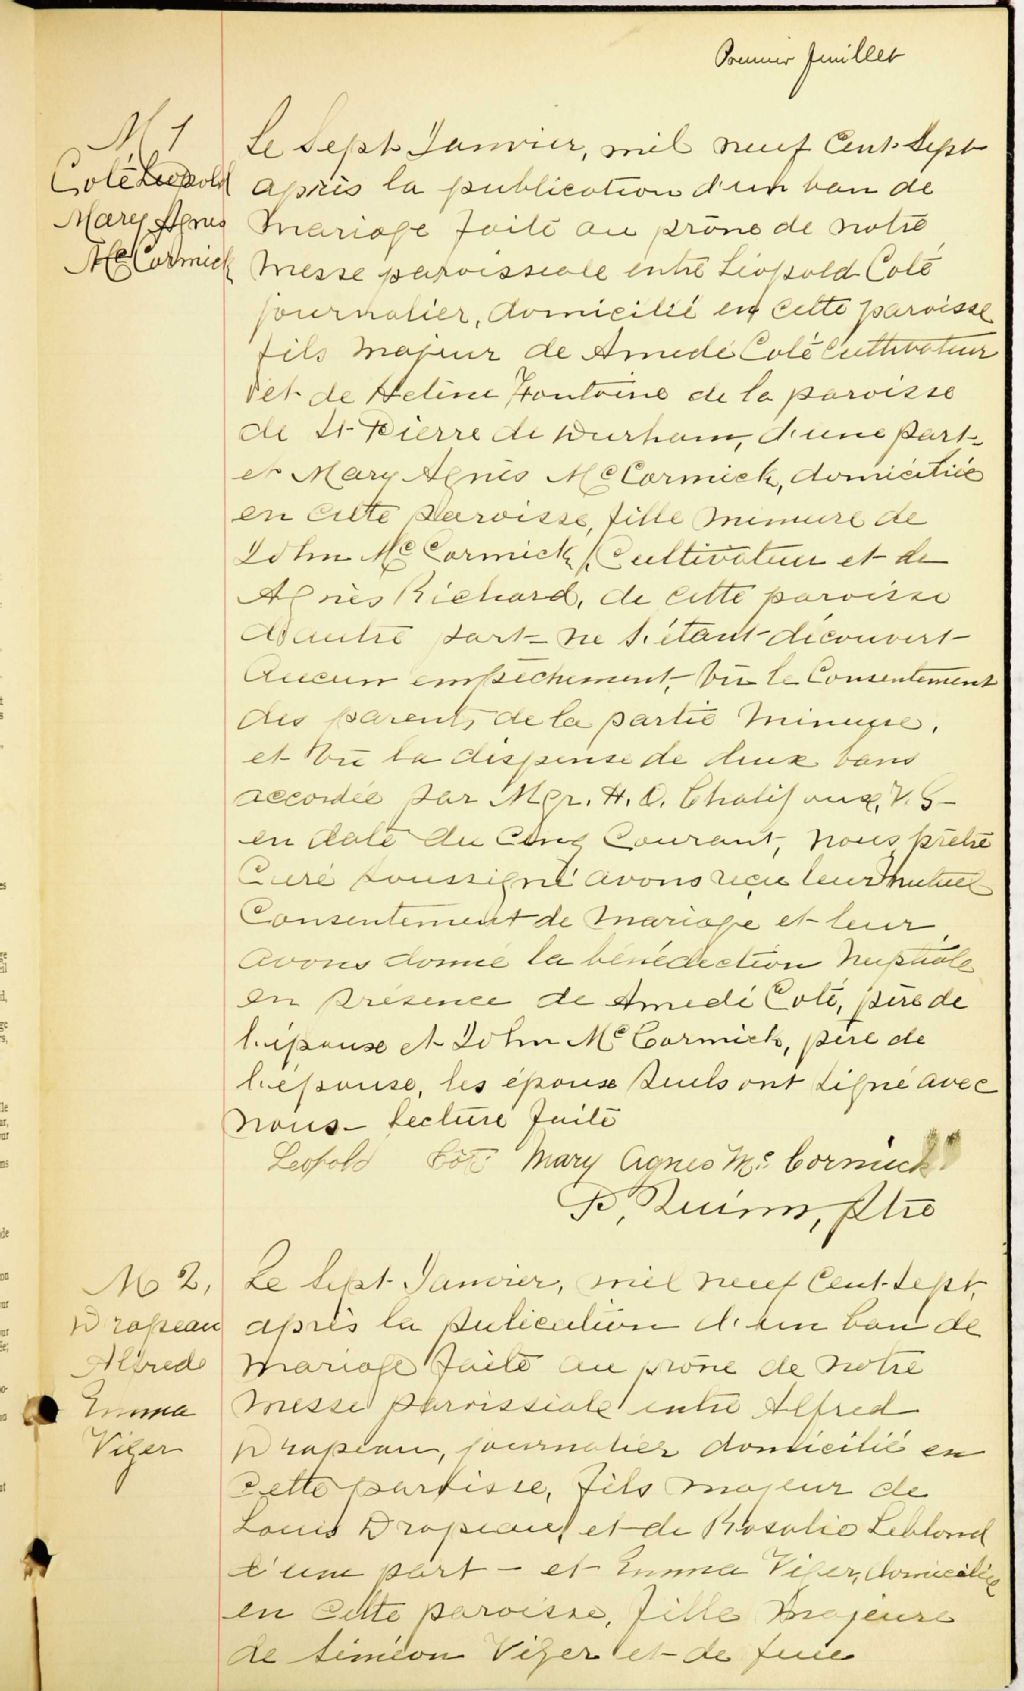 Premier feuillet
M 1
Coté Leopold
Mary Agnes
McCormick
Le Sept Janvier, mil neuf Cent Sept
après la publication d'un ban de
mariage faite au prône de notre
messe paroissiale entre Léopold Coté
journalier, domicilié en cette paroisse
fils majeur de Amedé Coté cultivateur
et de Heline Fontaine de la paroisse
de St Pierre de Durham, d'une part
et Mary Agnès McCormick, domiciliée
en cette paroisse, fille mineure de
John McCormick, Cultivateur et de
Agnès Richard, de cette paroisse
d'autre part = ne s'étant découvert
Aucun empêchement, Vu le Consentement
des parents de la partie mineure,
et Vu la dispense de deux bans
accordée par Mgr. H. O. Chalifoux, V. G-
en date du cinq Courant, nous, prêtre
Curé soussigné avons reçu leur mutuel
Consentement de mariage et leur
avons donné la bénédiction nuptiale
en présence de Amedé Coté, père de
l'époux et John McCormick, père de
l'épouse, les époux seuls ont signé avec
nous - Lecture faite
Leopold Côté Mary Agnes McCormick
P. Quinn, Ptre
M 2,
Drapeau
Alfred
Emma
Viger
Le Sept Janvier, mil neuf Cent Sept,
après la pulication d'un ban de
mariage faite au prône de notre
messe paroissiale entre Alfred
Drapeau, journalier domicilié en
cette paroisse, fils majeur de
Louis Drapeau, et de Rosalie Leblond
d'une part - et Emma Viger, domiciliée
en cette paroisse, fille majeure
de Siméon Viger et de feue